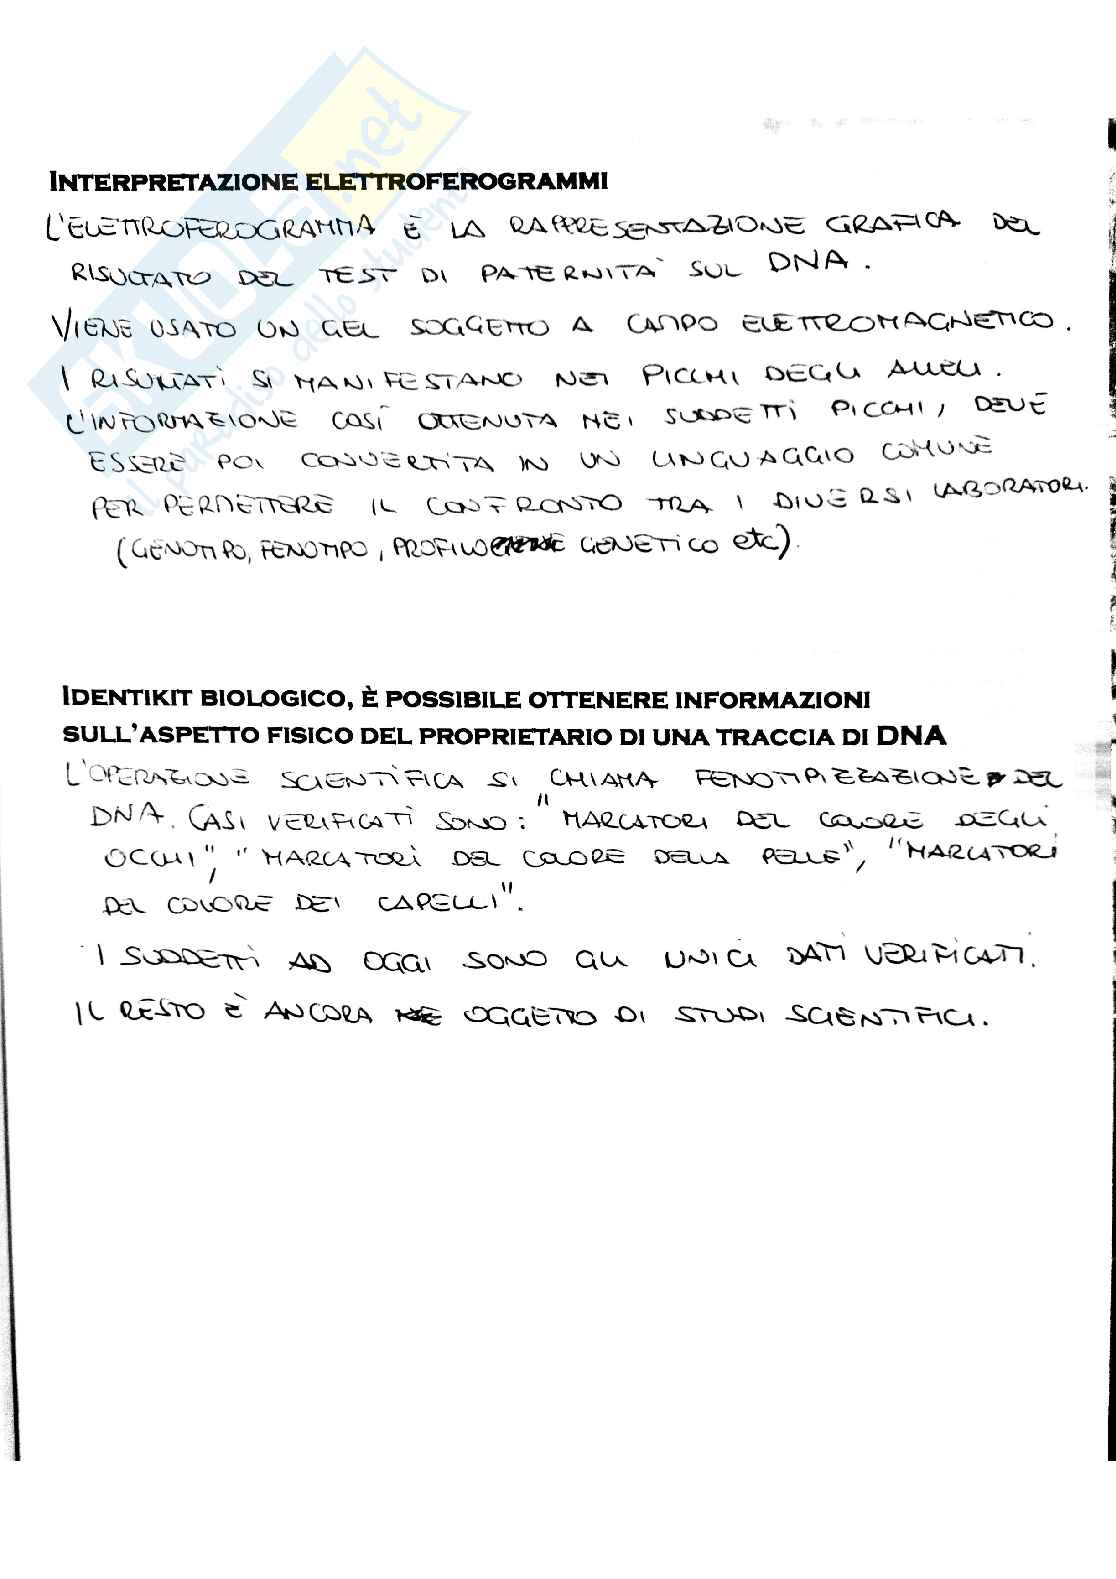 SKUOLA.net
il paradiso dello studente
INTERPRETAZIONE ELETTROFEROGRAMMI
L'ELETTROFEROGRAMMA È LA RAPPRESENTAZIONE GRAFICA DEL
RISULTATO DEL TEST DI PATERNITA' SUL DNA.
VIENE USATO UN GEL SOGGETTO A CAMPO ELETTROMAGNETICO.
I RISULTATI SI MANIFESTANO NEI PICCHI DEGLI ALLELI.
L'INFORMAZIONE COSÍ OTTENUTA NEI SUDDETTI PICCHI, DEVE
ESSERE POI CONVERTITA IN UN LINGUAGGIO COMUNE
PER PERMETTERE IL CONFRONTO TRA I DIVERSI LABORATORI.
(GENOTIPO, FENOTIPO, PROFILO GENETICO etc).
IDENTIKIT BIOLOGICO, È POSSIBILE OTTENERE INFORMAZIONI
SULL'ASPETTO FISICO DEL PROPRIETARIO DI UNA TRACCIA DI DNA
L'OPERAZIONE SCIENTIFICA SI CHIAMA FENOTIPIZZAZIONE DEL
DNA. CASI VERIFICATI SONO: "MARCATORI DEL COLORE DEGLI
OCCHI", "MARCATORI DEL COLORE DELLA PELLE", "MARCATORI
DEL COLORE DEI CAPELLI".
I SUDDETTI AD OGGI SONO GLI UNICI DATI VERIFICATI.
IL RESTO È ANCORA OGGETTO DI STUDI SCIENTIFICI.